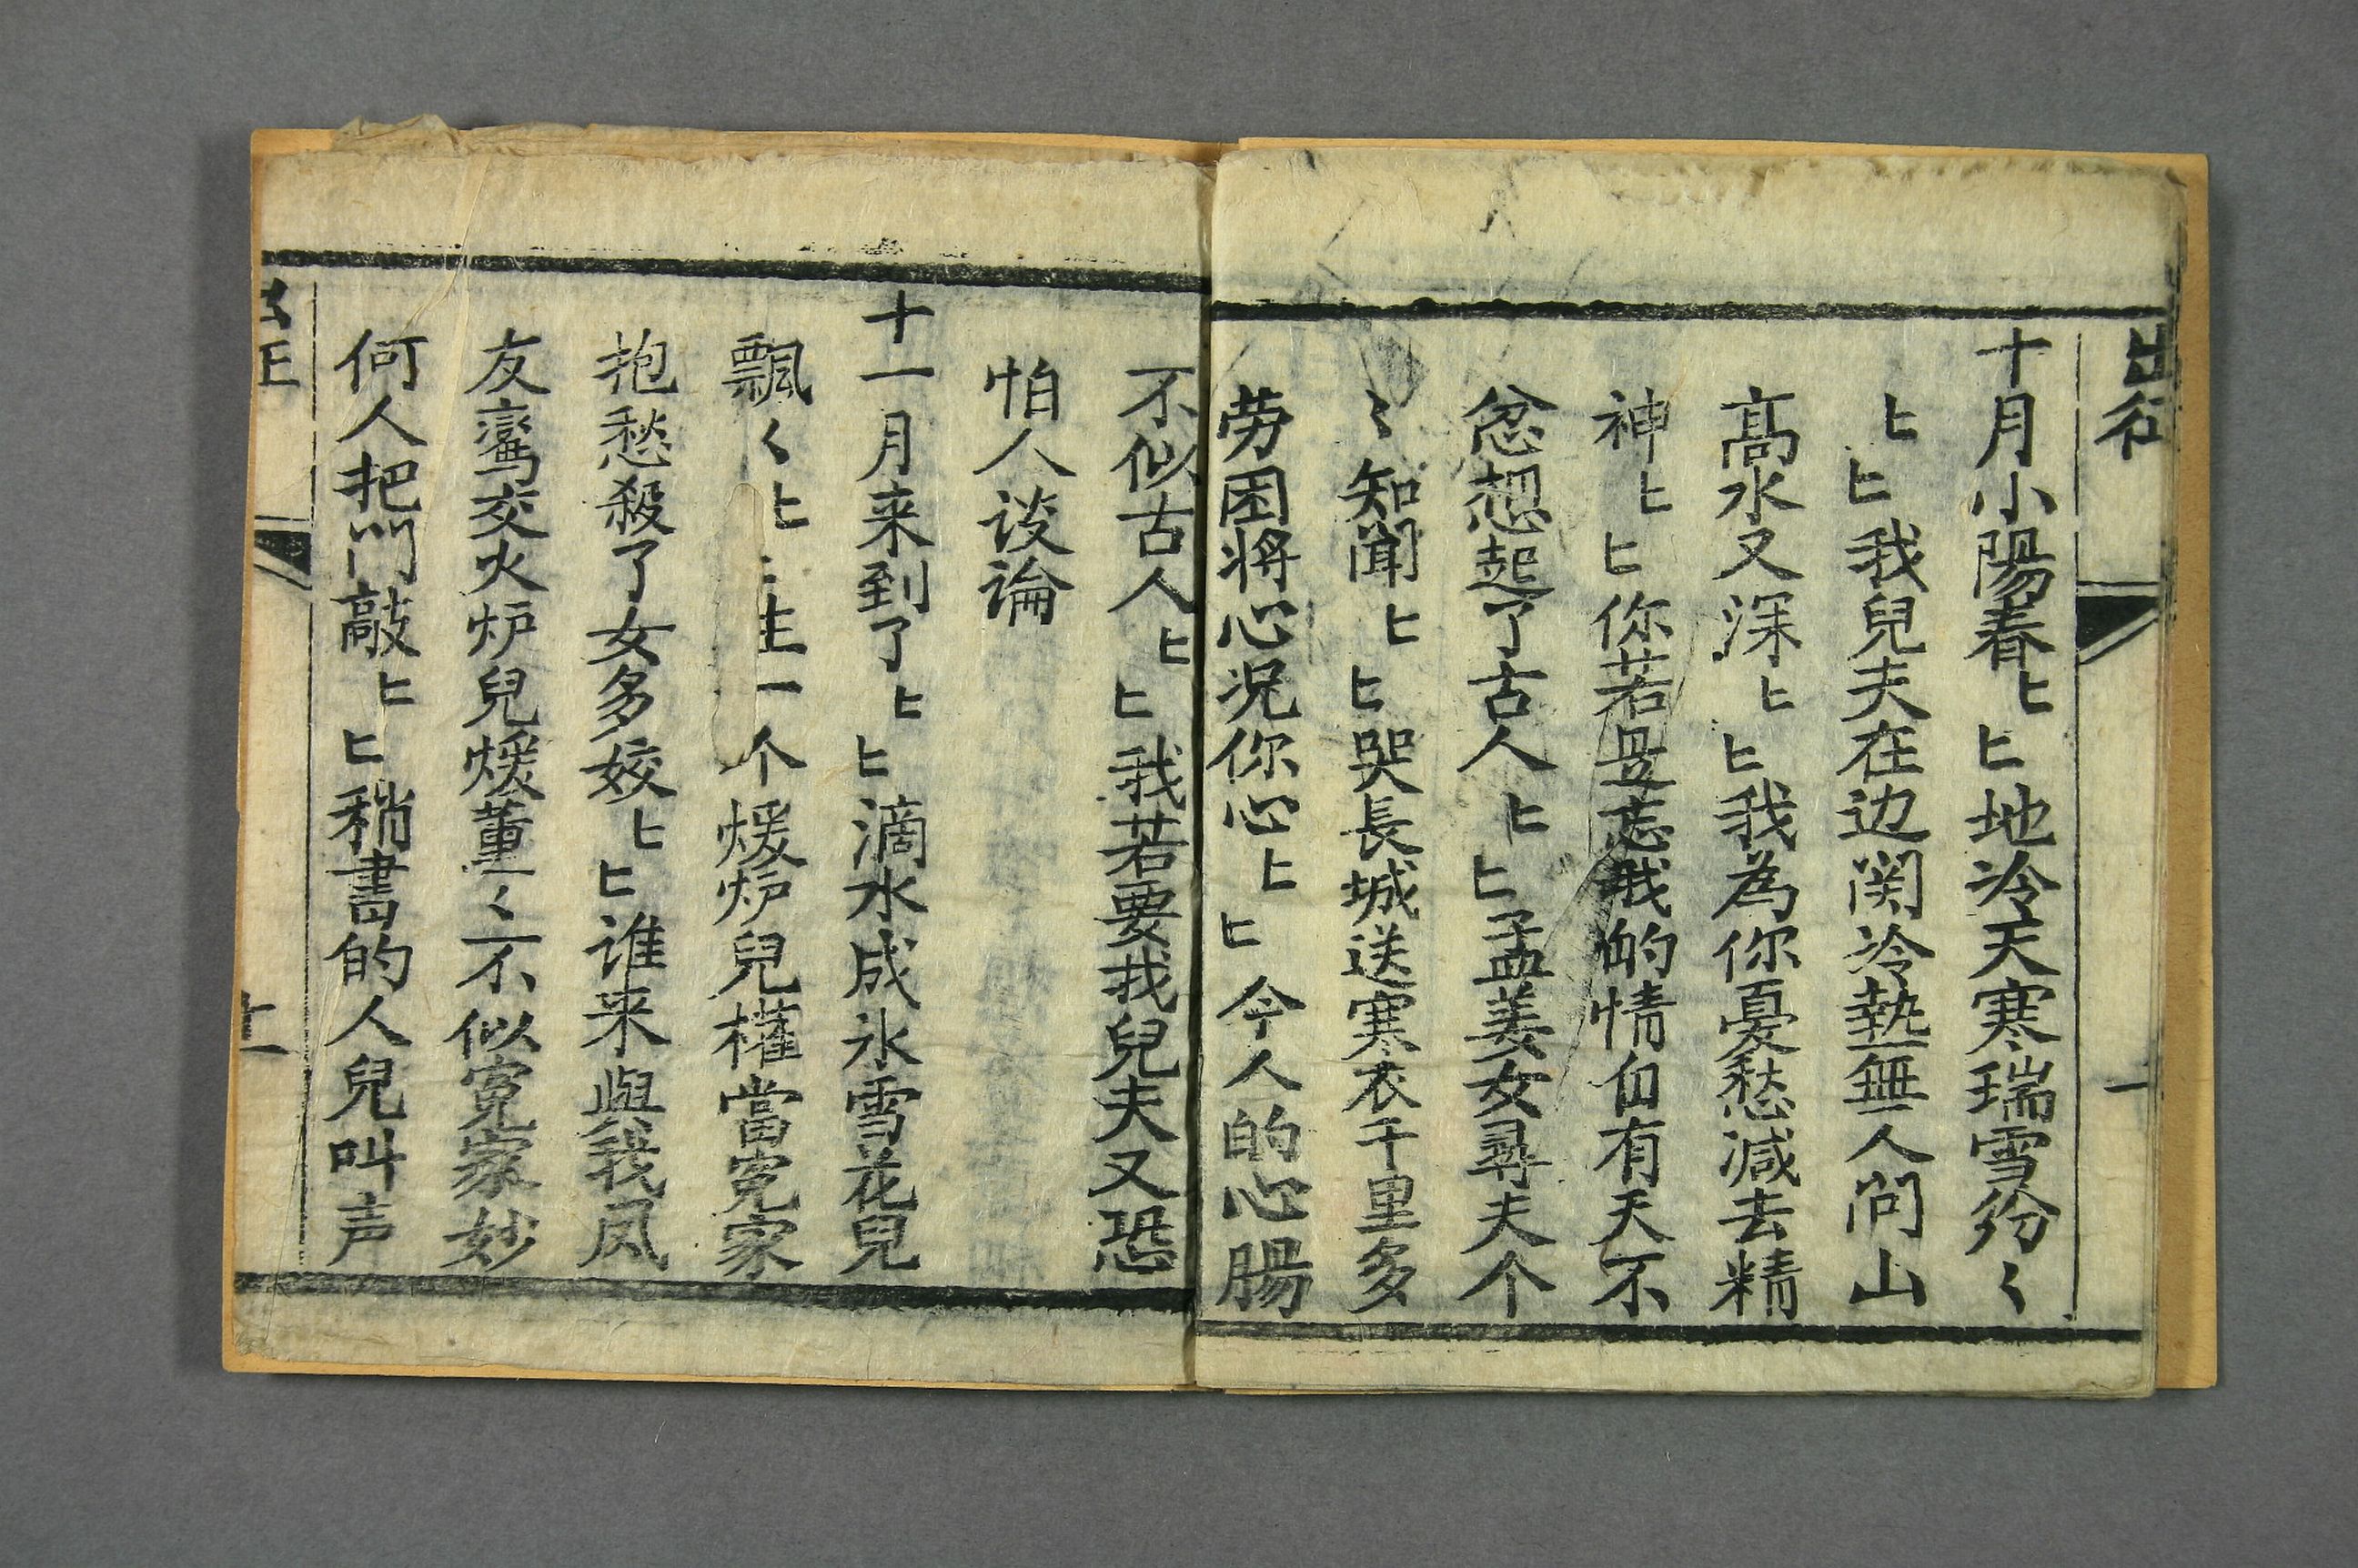 十月小陽春ヒヒ地冷天寒瑞雪紛〻
ヒヒ我兒夫在边関冷熱無人问山
高水又深ヒヒ我為你憂愁減去精
神ヒヒ你若是忘我的情自有天不
忿想起了古人ヒヒ孟姜女尋夫个
〻知聞ヒヒ哭長城送寒衣千里多
劳困将心况你心ヒヒ今人的心腸
不似古人ヒヒ我若要找兒夫又恐
怕人谈論
十一月来到了ヒヒ滴水成氷雪花兒
飄〻ヒ生一个煖炉兒權當寃家
抱愁殺了女多姣ヒヒ谁来與我凤
友鸞交火炉兒煖董〻不似寃家妙
何人把门敲ヒヒ稍書的人兒叫声